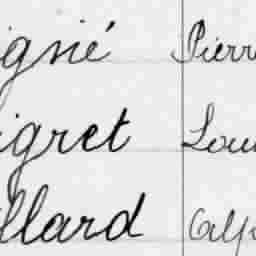 igné Pierr
igret Lou
llard Alp